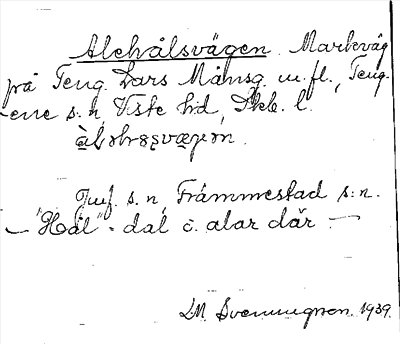 Alehålsvägen. Markväg
på Teng. Lars Månsg. m.fl., Teng-
ene s:n, Viste hd, Skb. l.
Juf. s.n, Främmestad s:n.
— "Hål" - dal o. alar där —
L.M. Svenungsson. 1939.